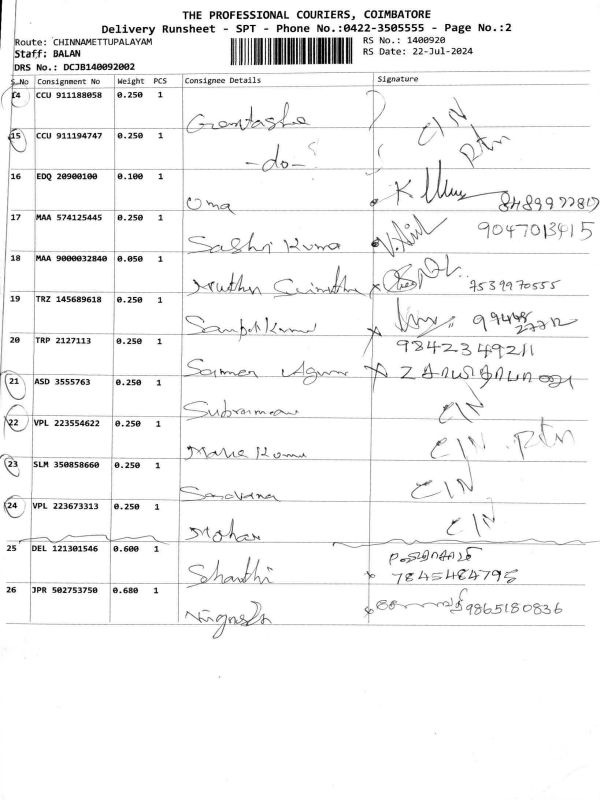 THE PROFESSIONAL COURIERS, COIMBATORE
Delivery Runsheet - SPT - Phone No.:0422-3505555 - Page No.:2
Route: CHINNAMETTUPALAYAM
RS No.: 1400920
Staff: BALAN
RS Date: 22-Jul-2024
DRS No.: DCJB140092002
S.No Consignment No Weight PCS Consignee Details Signature
14 CCU 911188058 0.250 1
CIN
15 CCU 911194747 0.250 1
-do- Rtn
16 EDQ 20900100 0.100 1
Uma
17 MAA 574125445 0.250 1
9047013415
Sashi Kuma
18 MAA 9000032840 0.050 1
Muthu
7539970555
19 TRZ 145689618 0.250 1
20 TRP 2127113 0.250 1
9842349211
21 ASD 3555763 0.250 1
CIN
22 VPL 223554622 0.250 1
CIN. Rtn
23 SLM 350858660 0.250 1
CIN
24 VPL 223673313 0.250 1
CIN
Mohan
25 DEL 121301546 0.600 1
Shanthi 7845484795
26 JPR 502753750 0.680 1
9865180836